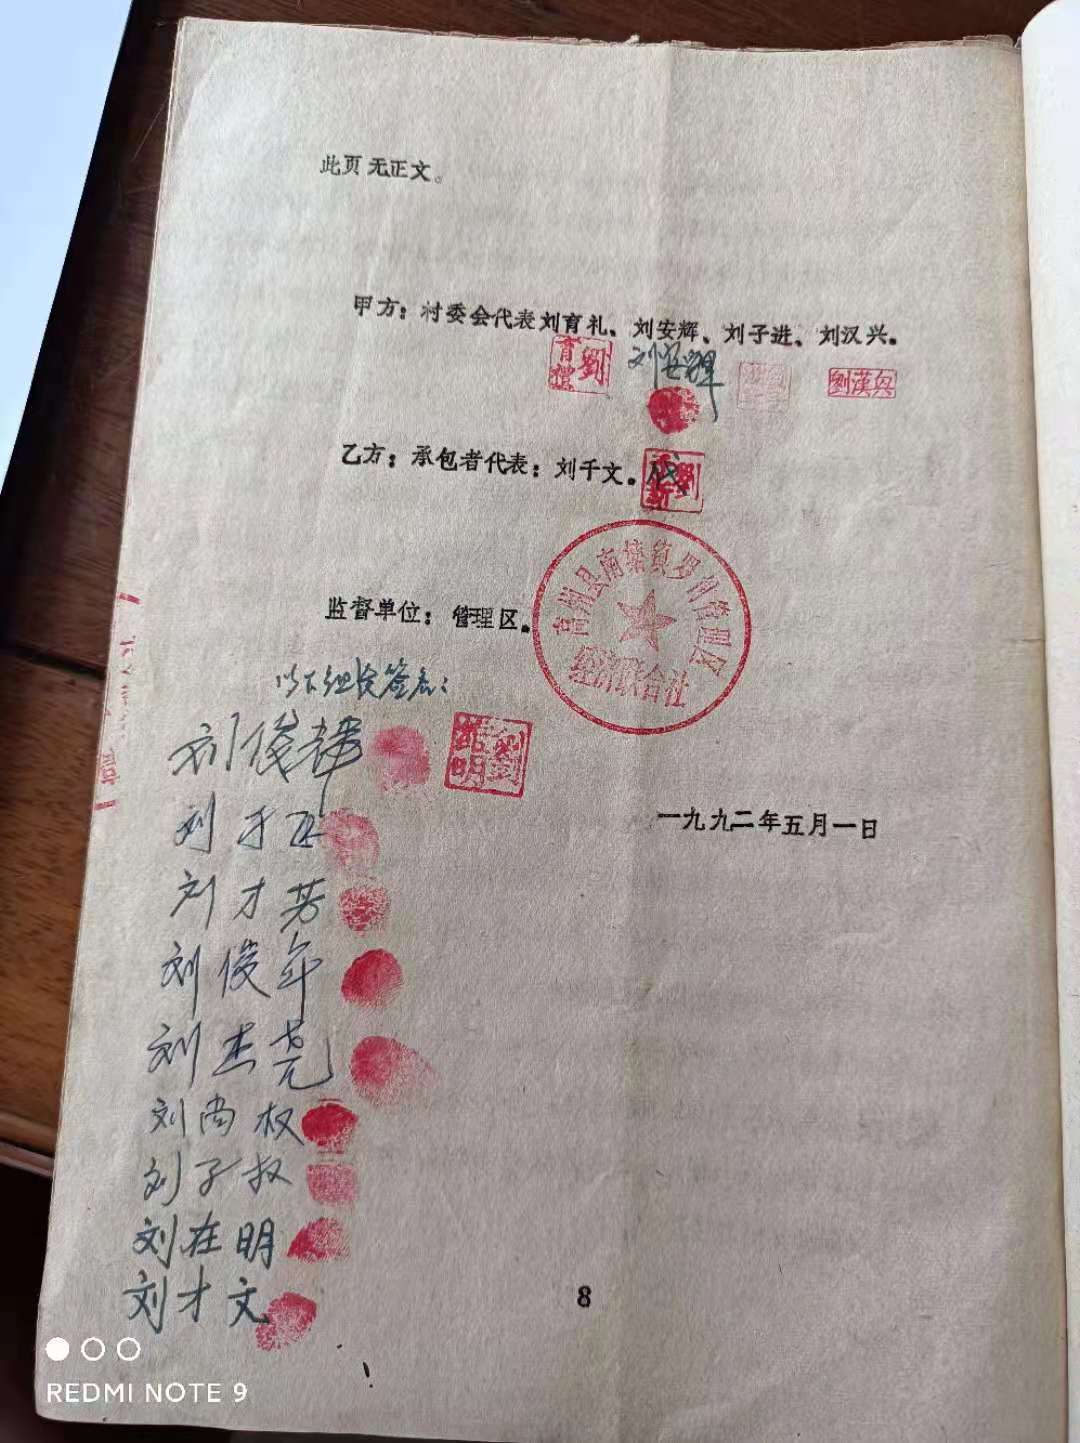 此页无正文。
甲方：村委会代表刘育礼、刘安辉、刘子进、刘汉兴。
劉育禮
刘安辉
劉漢興
乙方：承包者代表：刘千文。
监督单位：管理区。
高州县南塘镇罗村管理区
经济联合社
以下组长签名：
刘俊
劉 明
一九九二年五月一日
刘才
刘才芳
刘俊年
刘杰尧
刘尚权
刘子权
刘在明
刘才文
8
REDMI NOTE 9